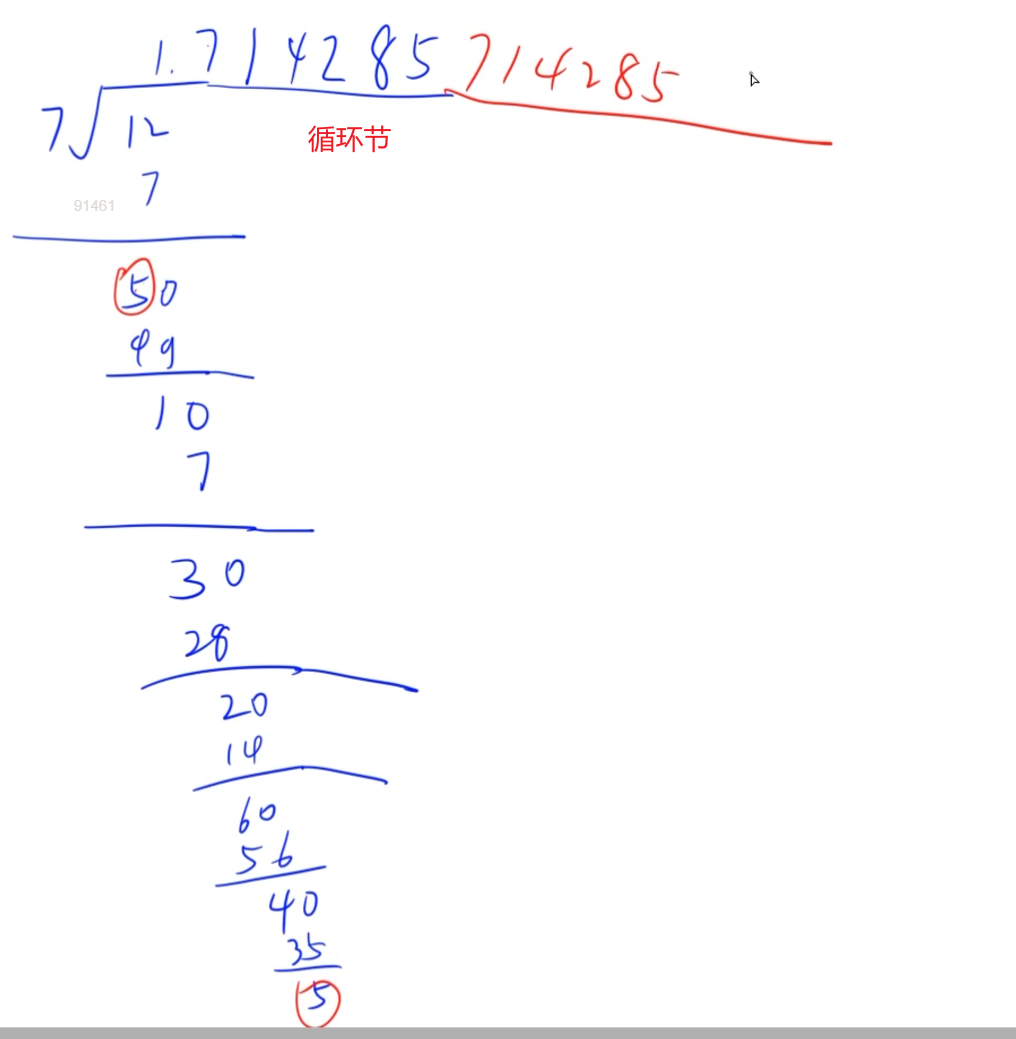 1.714285 714285
7 12
循环节
7
91461
50
49
10
7
30
28
20
14
60
56
40
35
5